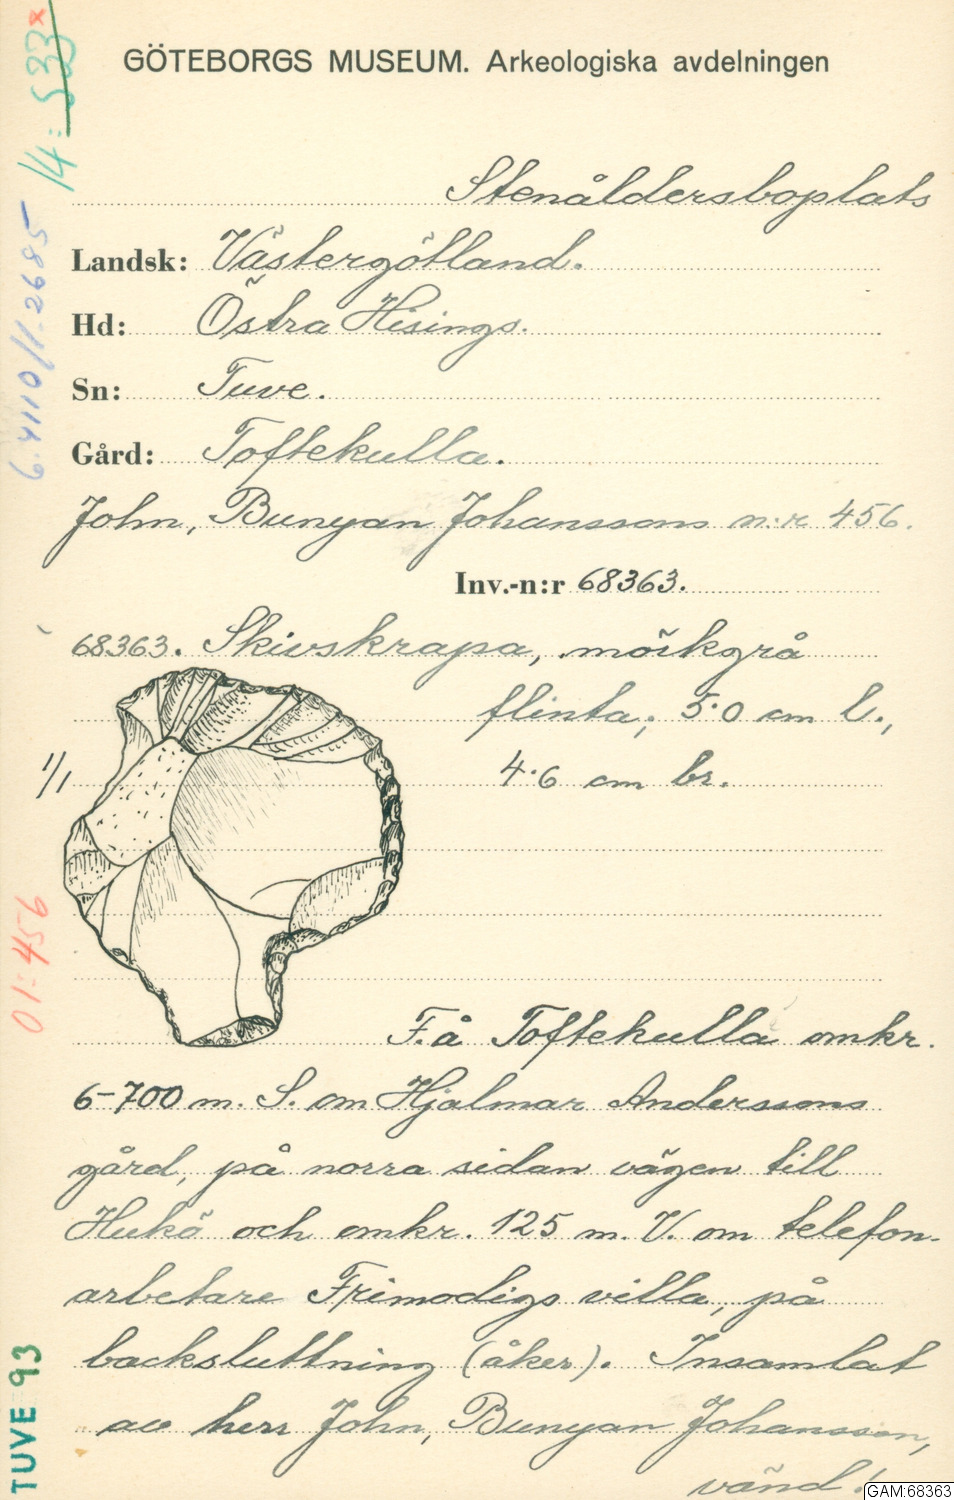 GÖTEBORGS MUSEUM. Arkeologiska avdelningen
Stenåldersboplats
Landsk: Västergötland.
Hd: Östra Hisings.
Sn: Tuve.
Gård: Toftekulla.
John, Bunyan Johanssons n:r 456.
Inv.-n:r 68363.
68363. Skivskrapa, mörkgrå
flinta, 5·0 cm l.,
1/1
4·6 cm br.
F.å Toftekulla omkr.
6-700 m. S. om Hjalmar Anderssons
gård, på norra sidan vägen till
Hukä och omkr. 125 m. V. om telefon-
arbetare Frimodigs villa, på
backsluttning (åker). Insamlat
av herr John, Bunyan Johansson,
vänd!
14: 533 x
6.4110/1.2685
01:456
TUVE 93
GAM:68363